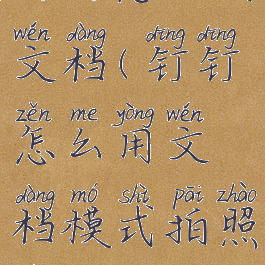 wén dàng dīng dīng
文档(钉钉
zěn me yòng wén
怎么用文
dàng mó shì pāi zhào
档模式拍照